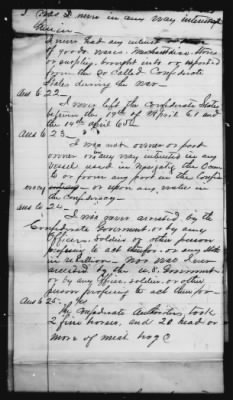 I was I never in any way interested
I never had any interest
of goods wares, Merchandise, Stores
or supplies, brought into or exported
from the so called Confederate
States during the War—
Ans to 22—
I never left the Confederate States
between the 19th of April 61 and
the 19th April 65
Ans to 23
I was not owner or part
owner in any way interested in any
vessel used in navigating the
to or from any port in the Confed
eracy or upon any water in
the Confederacy—
Ans to 24—
I was never arrested by the
Confederate Government or by any
Officer, Soldier or other person
professing to act therefor, or any State
in rebellion. Nor was I ever
arrested by the U.S. Government
or by any officer, soldier, or other
person professing to act therefor—
Ans to 25— Yes
My Confederate Authorities, took
2 fine horses, and 20 head or
more of meat hogs